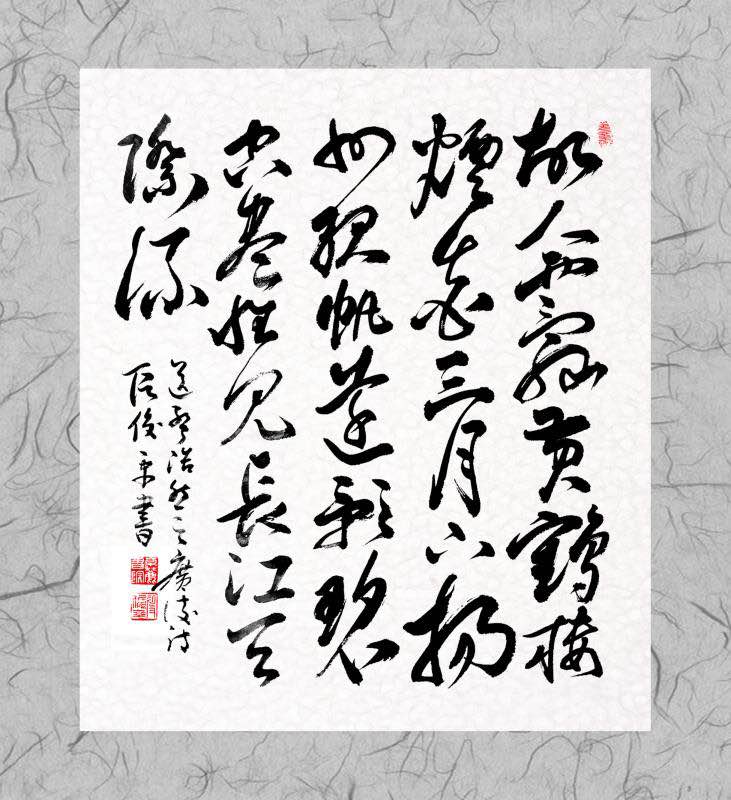 故人西辭黃鶴樓
煙花三月下揚
州孤帆遠影碧
空盡惟見長江天
際流
送孟浩然之廣陵詩
俊平書